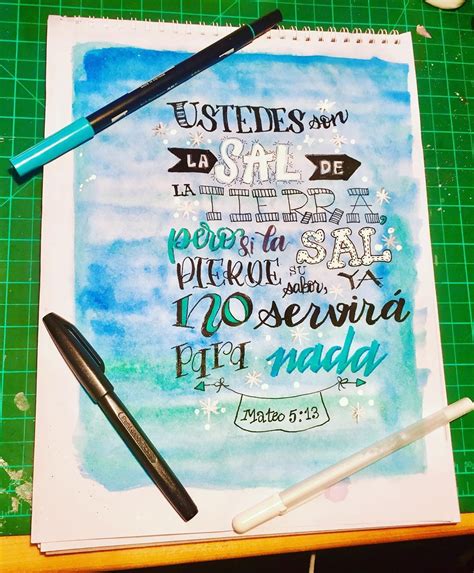 USTEDES son
LA SAL DE
LA TIERRA,
pero si la SAL
PIERDE su sabor, YA
NO servirá
PARA nada
Mateo 5:13